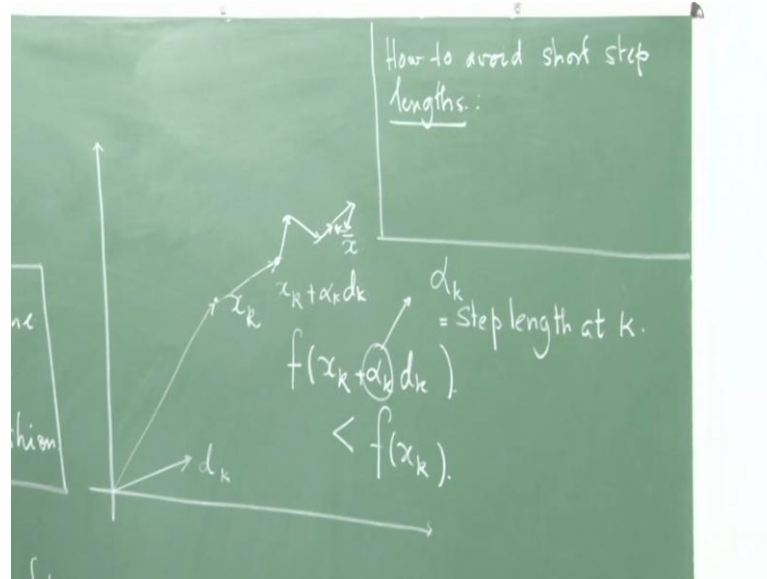 How to avoid short step
lengths:
x̄
x_k
x_k + α_k d_k
α_k
= Step length at k.
f(x_k + α_k d_k)
< f(x_k).
d_k